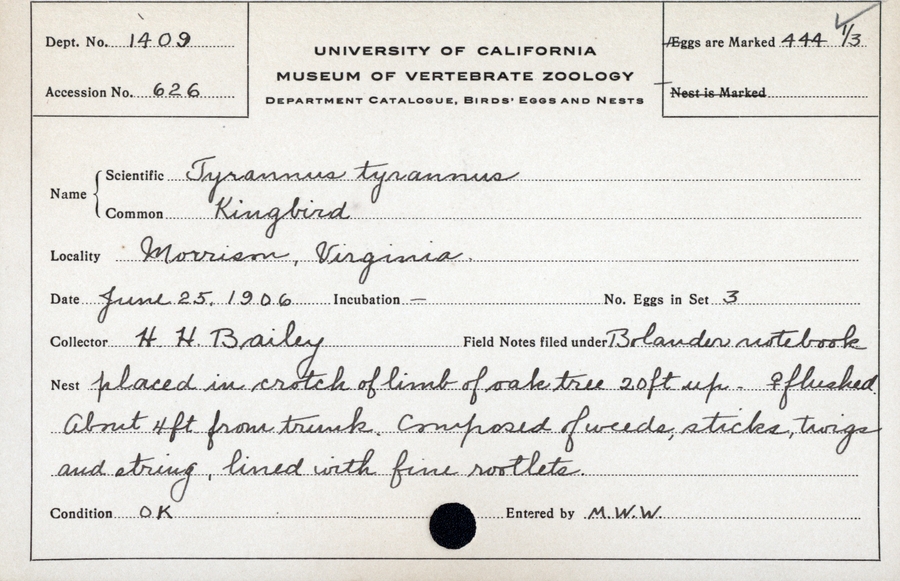 Dept. No. 1409
Accession No. 626
UNIVERSITY OF CALIFORNIA
MUSEUM OF VERTEBRATE ZOOLOGY
DEPARTMENT CATALOGUE, BIRDS' EGGS AND NESTS
Eggs are Marked 444 1/3
Nest is Marked
Name { Scientific Tyrannus tyrannus
Common Kingbird
Locality Morrison, Virginia.
Date June 25, 1906 Incubation — No. Eggs in Set 3
Collector H. H. Bailey Field Notes filed under Bolander notebook
Nest placed in crotch of limb of oak tree 20ft up. ♀ flushed.
About 4ft from trunk. Composed of weeds, sticks, twigs
and string, lined with fine rootlets.
Condition OK Entered by M.W.W.